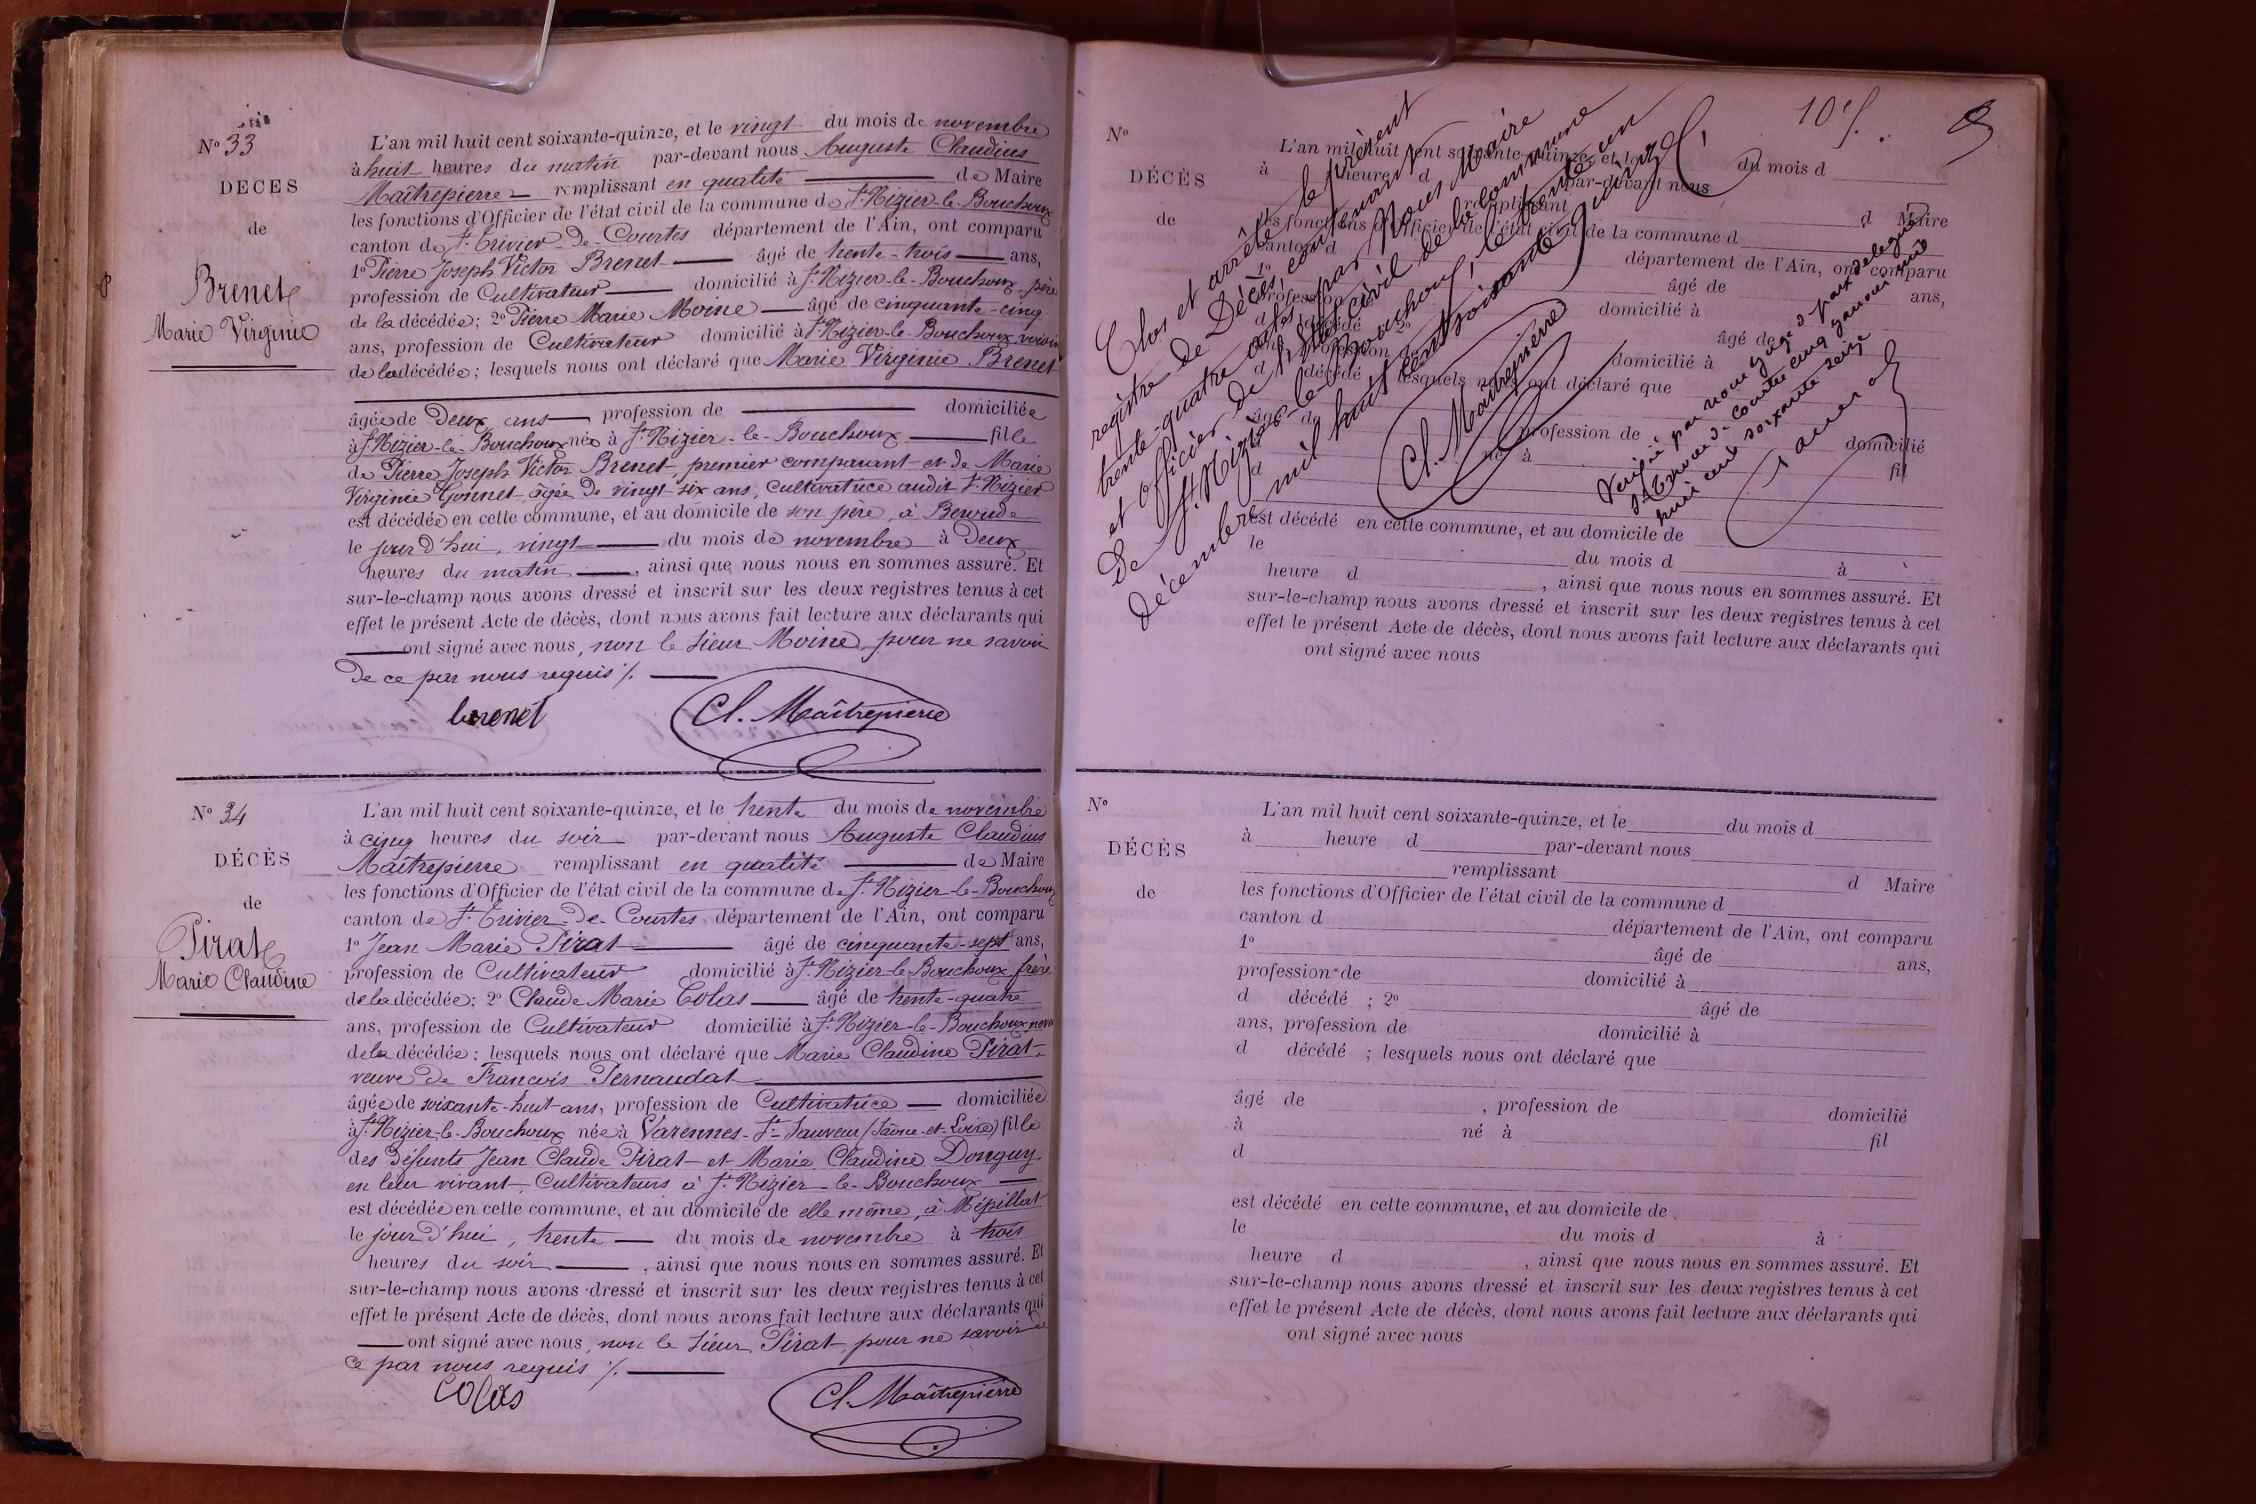 N° 33
DÉCÈS
de
Brenet
Marie Virginie
L'an mil huit cent soixante-quinze, et le vingt du mois de novembre
à huit heures du matin par-devant nous Auguste Claudius
Maîtrepierre remplissant en qualité de Maire
les fonctions d'Officier de l'état civil de la commune de St Nizier-le-Bouchoux
canton de St Trivier-de-Courtes département de l'Ain, ont comparu
1° Pierre Joseph Victor Brenet âgé de trente-trois ans,
profession de Cultivateur domicilié à St Nizier-le-Bouchoux père
de la décédée; 2° Pierre Marie Moine âgé de cinquante-cinq
ans, profession de Cultivateur domicilié à St Nizier-le-Bouchoux voisin
de la décédée; lesquels nous ont déclaré que Marie Virginie Brenet
âgée de Deux ans profession de domiciliée
à St Nizier-le-Bouchoux née à St Nizier-le-Bouchoux fille
de Pierre Joseph Victor Brenet premier comparant et de Marie
Virginie Gonnet âgée de vingt-six ans, cultivatrice audit St Nizier
est décédée en cette commune, et au domicile de son père, à
le jour d'hui, vingt du mois de novembre à Deux
heures du matin, ainsi que nous nous en sommes assuré. Et
sur-le-champ nous avons dressé et inscrit sur les deux registres tenus à cet
effet le présent Acte de décès, dont nous avons fait lecture aux déclarants qui
ont signé avec nous, non le sieur Moine pour ne savoir
de ce par nous requis ./.
brenet
Cl. Maîtrepierre
N° 34
DÉCÈS
de
Pirat
Marie Claudine
L'an mil huit cent soixante-quinze, et le trente du mois de novembre
à cinq heures du soir par-devant nous Auguste Claudius
Maîtrepierre remplissant en qualité de Maire
les fonctions d'Officier de l'état civil de la commune de St Nizier-le-Bouchoux
canton de St Trivier-de-Courtes département de l'Ain, ont comparu
1° Jean Marie Pirat âgé de cinquante-sept ans,
profession de Cultivateur domicilié à St Nizier-le-Bouchoux frère
de la décédée; 2° Claude Marie Colas âgé de trente-quatre
ans, profession de Cultivateur domicilié à St Nizier-le-Bouchoux neveu
de la décédée; lesquels nous ont déclaré que Marie Claudine Pirat,
veuve de François Pernaudat
âgée de soixante-huit ans, profession de Cultivatrice domiciliée
à St Nizier-le-Bouchoux née à Varennes-St-Sauveur (Saône-et-Loire) fille
des défunts Jean Claude Pirat et Marie Claudine Donguy
en leur vivant, Cultivateurs à St Nizier-le-Bouchoux
est décédée en cette commune, et au domicile de elle même, à Mépillat
le jour d'hui, trente du mois de novembre à trois
heures du soir, ainsi que nous nous en sommes assuré. Et
sur-le-champ nous avons dressé et inscrit sur les deux registres tenus à cet
effet le présent Acte de décès, dont nous avons fait lecture aux déclarants qui
ont signé avec nous, non le sieur Pirat pour ne savoir de
ce par nous requis ./.
colas
Cl. Maîtrepierre
Clos et arrêté le présent
registre de Décès, contenant
trente-quatre actes, par Nous Maire
et officier de l'état civil de la commune
de St Nizier-le-Bouchoux, le trente un
décembre mil huit cent soixante quinze
Cl. Maîtrepierre
Vérifié par nous juge d paix délégué
huit cent soixante seize
N°
DÉCÈS
de
L'an mil huit cent soixante-quinze, et le du mois d
à heure d par-devant nous
remplissant d Maire
les fonctions d'Officier de l'état civil de la commune d
canton d département de l'Ain, ont comparu
1° âgé de ans,
profession domicilié à
d décédé 2° âgé de
ans, profession domicilié à
d décédé lesquels nous ont déclaré que
âgé de profession de domicilié
né à fil
d
est décédé en cette commune, et au domicile de
le du mois d à
heure d , ainsi que nous nous en sommes assuré. Et
sur-le-champ nous avons dressé et inscrit sur les deux registres tenus à cet
effet le présent Acte de décès, dont nous avons fait lecture aux déclarants qui
ont signé avec nous
N°
DÉCÈS
de
L'an mil huit cent soixante-quinze, et le du mois d
à heure d par-devant nous
remplissant d Maire
les fonctions d'Officier de l'état civil de la commune d
canton d département de l'Ain, ont comparu
1° âgé de ans,
profession de domicilié à
d décédé ; 2° âgé de
ans, profession de domicilié à
d décédé ; lesquels nous ont déclaré que
âgé de , profession de domicilié
à né à fil
d
est décédé en cette commune, et au domicile de
le du mois d à
heure d , ainsi que nous nous en sommes assuré. Et
sur-le-champ nous avons dressé et inscrit sur les deux registres tenus à cet
effet le présent Acte de décès, dont nous avons fait lecture aux déclarants qui
ont signé avec nous